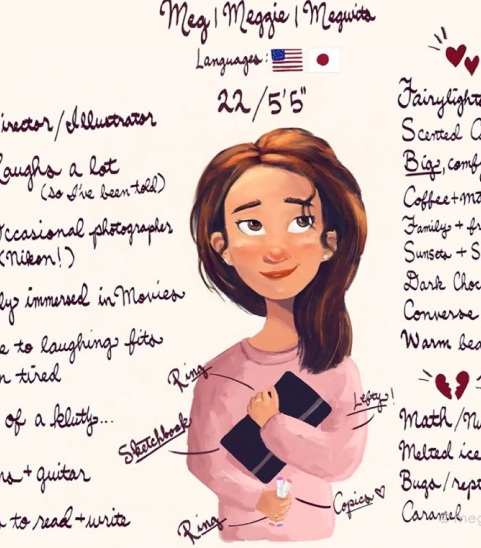 Meg | Meggie | Meguita
Languages:
22/5'5"
irector/Illustrator
Laughs a lot
(so I've been told)
Occasional photographer
(Nikon!)
ly immersed in Movies
e to laughing fits
n tired
of a klutz...
+ guitar
to read + write
Ring
Sketchbook
Ring
Lefty!
Copics ♡
Fairylights
Scented
Big, comfy
Coffee +
Family +
Sunsets + S
Dark Choc
Converse
Warm
Math/Nu
Melted ice
Bugs/rept
Caramel